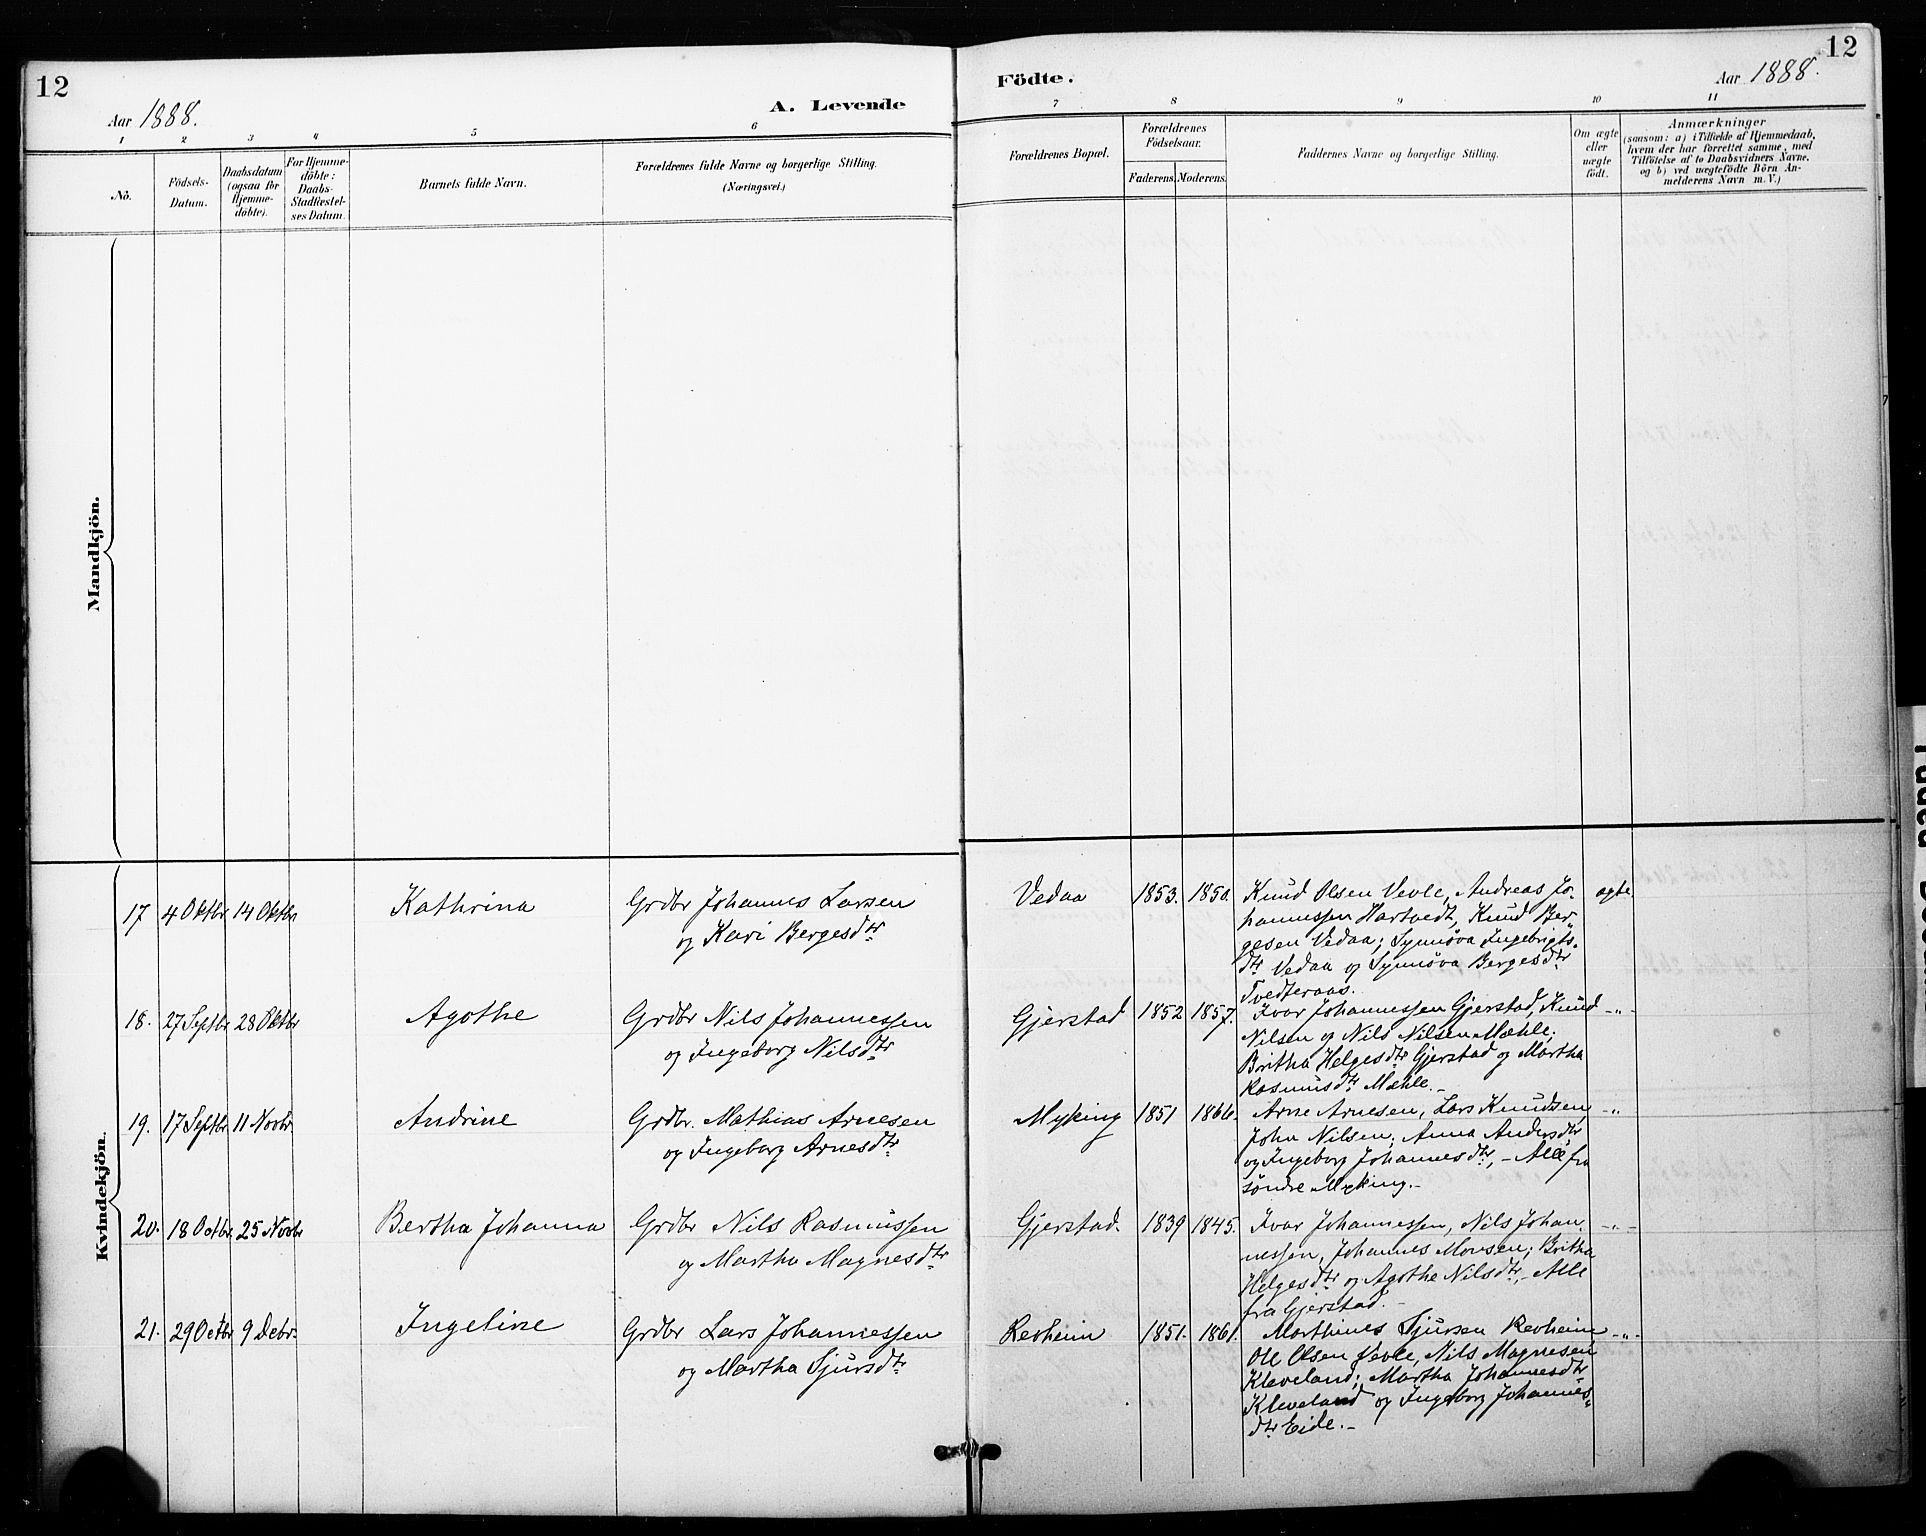 12
Aar 1888.
A. Levende
1 2 3 4 5 6
No.
Födsels-
Datum.
Daabsdatum
(ogsaa for
Hjemme-
døbte).
For Hjemme-
døbte:
Daabs-
Stadfæstel-
ses Datum.
Barnets fulde Navn.
Forældrenes fulde Navne og borgerlige Stilling.
(Næringsvei.)
Mandkjön.
Kvindekjön.
17 4 Oktbr 14 Oktbr Kathrina Grdbr Johannes Larsen
og Kari Bergesdtr
18. 27 Septbr 28 Oktbr Agothe Grdbr Nils Johannessen
og Ingeborg Nilsdtr
19. 17 Septbr 11 Novbr Andrine Grdbr. Mathias Arnesen
og Ingeborg Arnesdtr
20. 18 Octbr. 25 Novbr Bertha Johanna Grdbr Nils Rasmussen
og Martha Magnesdtr
21. 29 Octbr 9 Debr. Ingeline Grdbr Lars Johannessen
og Martha Sjursdtr
Födte.
Aar 1888.
12
7 8 9 10 11
Forældrenes Bopæl.
Forældrenes
Födselsaar.
Faderens. Moderens.
Faddernes Navne og borgerlige Stilling.
Om ægte
eller
uægte
födt.
Anmærkninger
(saasom: a) i Tilfælde af Hjemmedaab,
hvem der har forrettet samme, med
Tilföielse af to Daabsvidners Navne,
og b) ved uægtefödte Börn An-
melderens Navn m. V.)
Vedaa 1853. 1850. Knud Olsen Vevle, Andreas Jo- ægte
hannessen Hartvedt, Knud Ber-
gesen Vedaa; Synnøva Ingebrigts-
dtr Vedaa og Synnøva Bergesdtr
Tvedteraas.
Gjerstad 1852 1857. Ivar Johannessen Gjerstad, Knud -„-
Nilsen og Nils Nilsen Mæhle;
Britha Helgesdtr Gjerstad og Martha
Rasmusdtr Mæhle.-
Myking 1851 1866. Arne Arnesen, Lars Knudsen -„
John Nilsen; Anna Andersdtr
og Ingeborg Johannesdtr, - Alle fra
søndre Myking.-
Gjerstad. 1839 1845. Ivar Johannessen, Nils Johan- -„-
nessen, Johannes Monsen; Britha
Helgesdtr og Agothe Nilsdtr,- Alle
fra Gjerstad.-
Revheim 1851. 1861. Marthines Sjursen Revheim -„-
Ole Olsen Vevle, Nils Magnesen
Kleveland; Martha Johannesdtr
Kleveland og Ingeborg Johannes-
dtr Eide.-